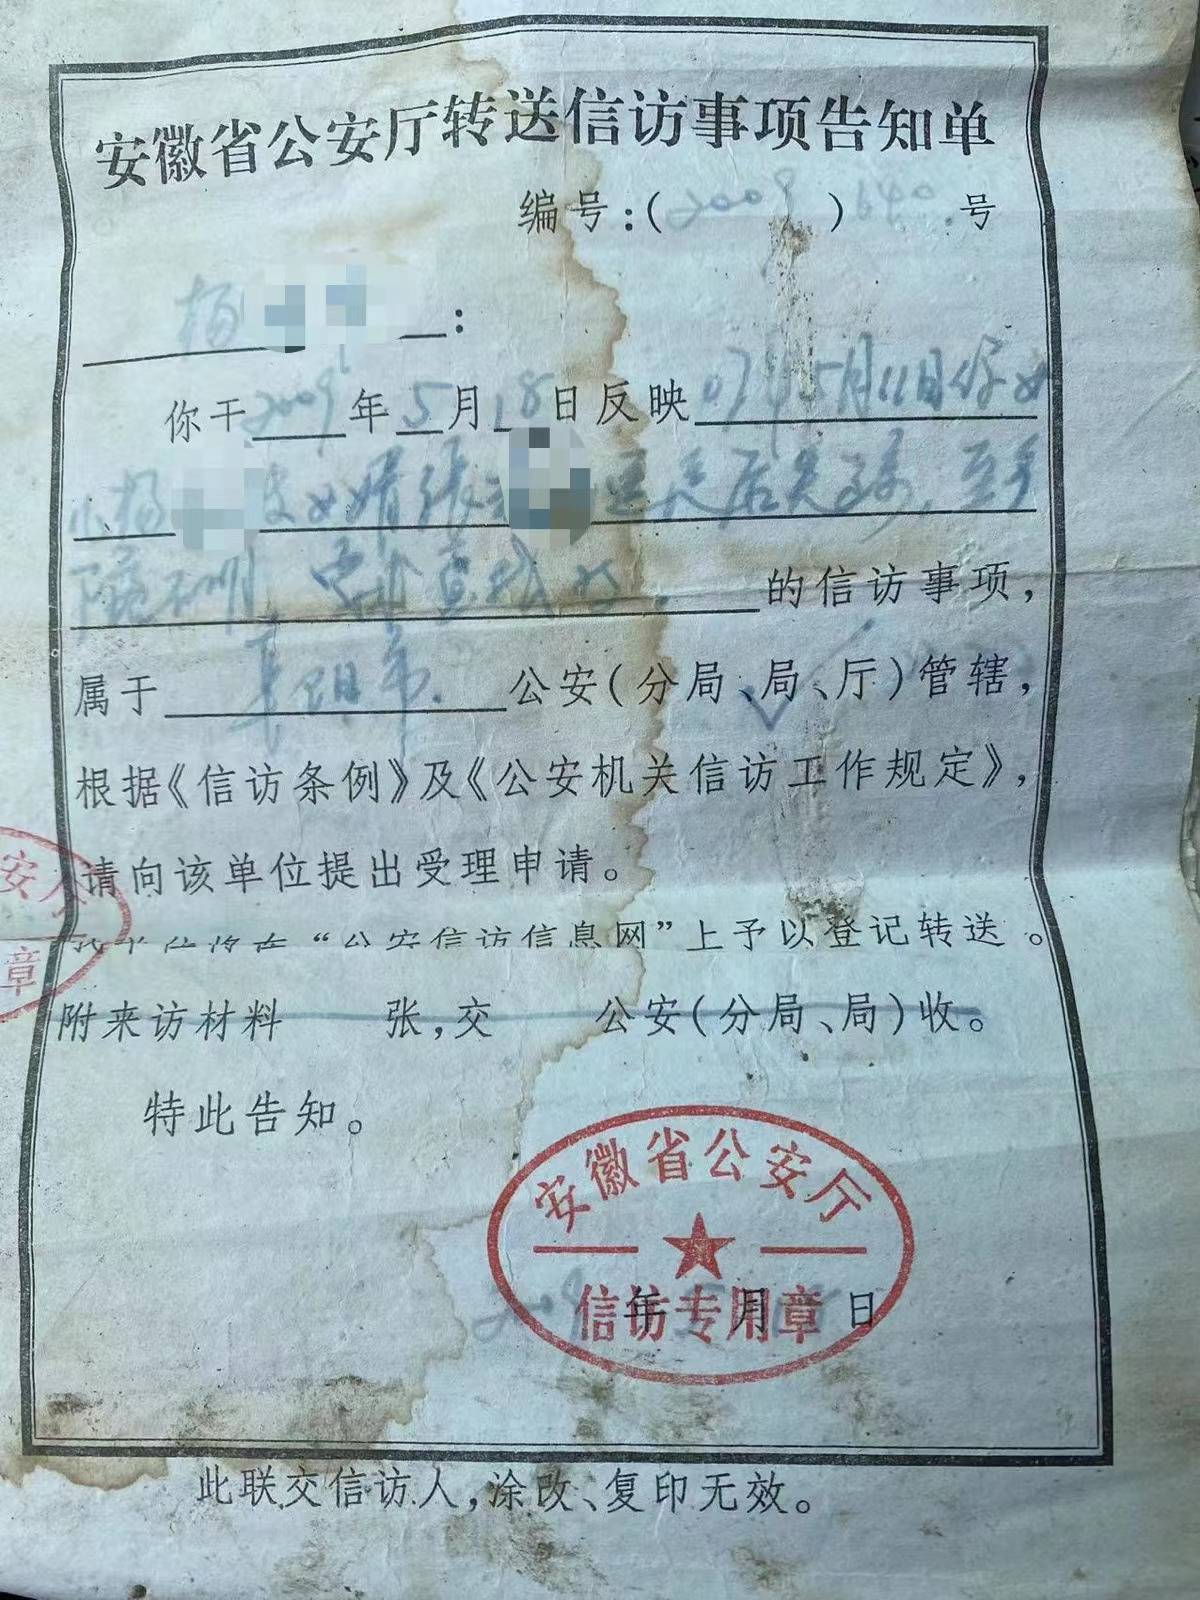 安徽省公安厅转送信访事项告知单
编号:(2009)640号
杨 :
你于2009年5月18日反映07年5月11日你女
儿杨 被女婿张 后失踪,至今
下落不明,要求查找的。的信访事项,
属于 市.公安(分局、局、厅)管辖,
根据《信访条例》及《公安机关信访工作规定》,
请向该单位提出受理申请。
“公安信访信息网”上予以登记转送。
附来访材料 张,交 公安(分局、局)收。
特此告知。
安徽省公安厅
信访专用章
2009年5月 日
安厅
章
此联交信访人,涂改、复印无效。